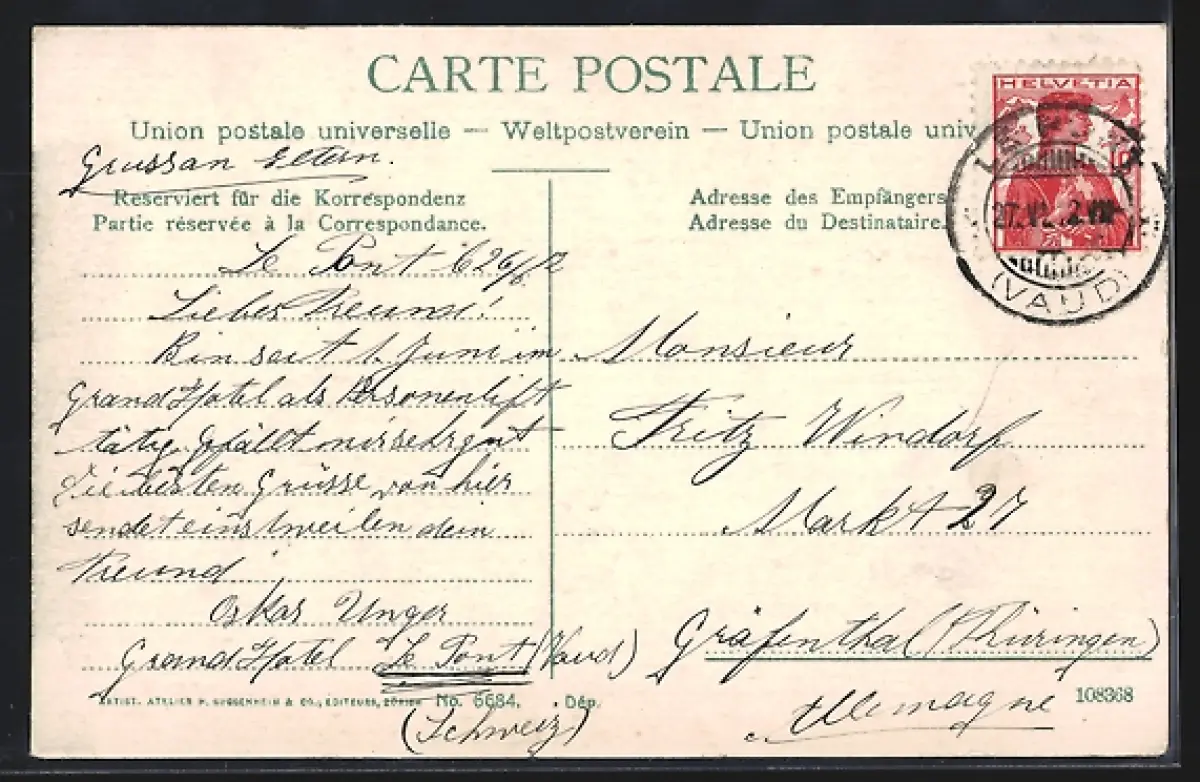 CARTE POSTALE
Union postale universelle — Weltpostverein — Union postale univ
Gruss an Eltern.
Reserviert für die Korrespondenz
Partie réservée à la Correspondance.
Le Pont 26/6 12
Lieber Freund!
Bin seit 1. Juni im
Grand Hotel als Personenlift
tätig. Gefällt mir sehr gut
Die besten Grüsse von hier
sendet einstweilen dein
Freund
Oskar Unger
Grand Hotel Le Pont (Vaud)
(Schweiz)
ARTIST. ATELIER H. GUGGENHEIM & CO., EDITEURS, ZÜRICH No. 6684. Dép.
Adresse des Empfängers
Adresse du Destinataire.
HELVETIA
10
LE PONT
27. VI. 12. VII
(VAUD)
Monsieur
Fritz Windorf
Markt 27
Gräfenthal (Thüringen)
Allemagne
108368